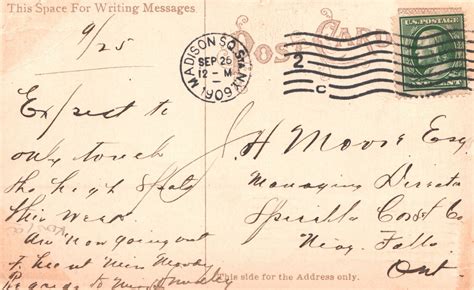 This Space For Writing Messages
9/25
Expect to
only touch
the high spots
this week
Are now going out
Regards to
POST CARD
MADISON SQ. STA. N.Y. 1909
SEP 25
12 - M
2
C
U.S. POSTAGE
J H Moore Esq
Managing Director
Spirella Corset Co
Niag. Falls
Ont
This side for the Address only.